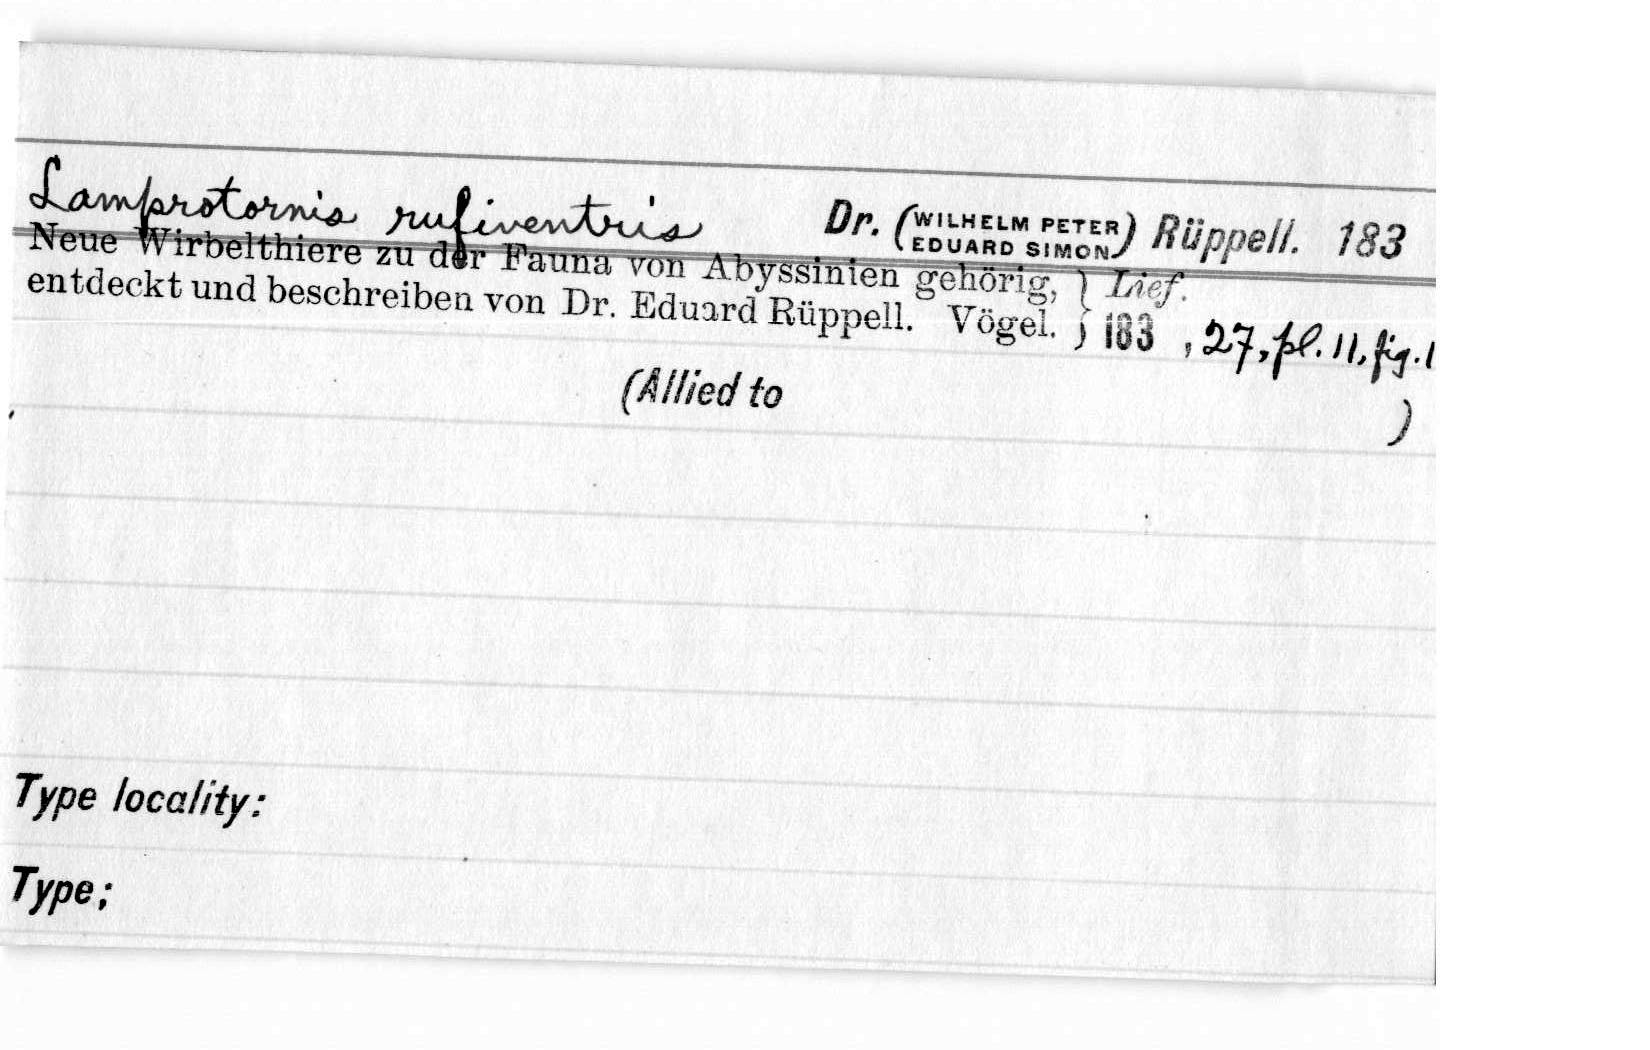 Lamprotornis rufiventris Dr. (WILHELM PETER EDUARD SIMON) Rüppell. 183
Neue Wirbelthiere zu der Fauna von Abyssinien gehörig, } Lief.
entdeckt und beschreiben von Dr. Eduard Rüppell. Vögel. } 183 , 27, pl. 11, fig. 1
(Allied to )
Type locality:
Type;